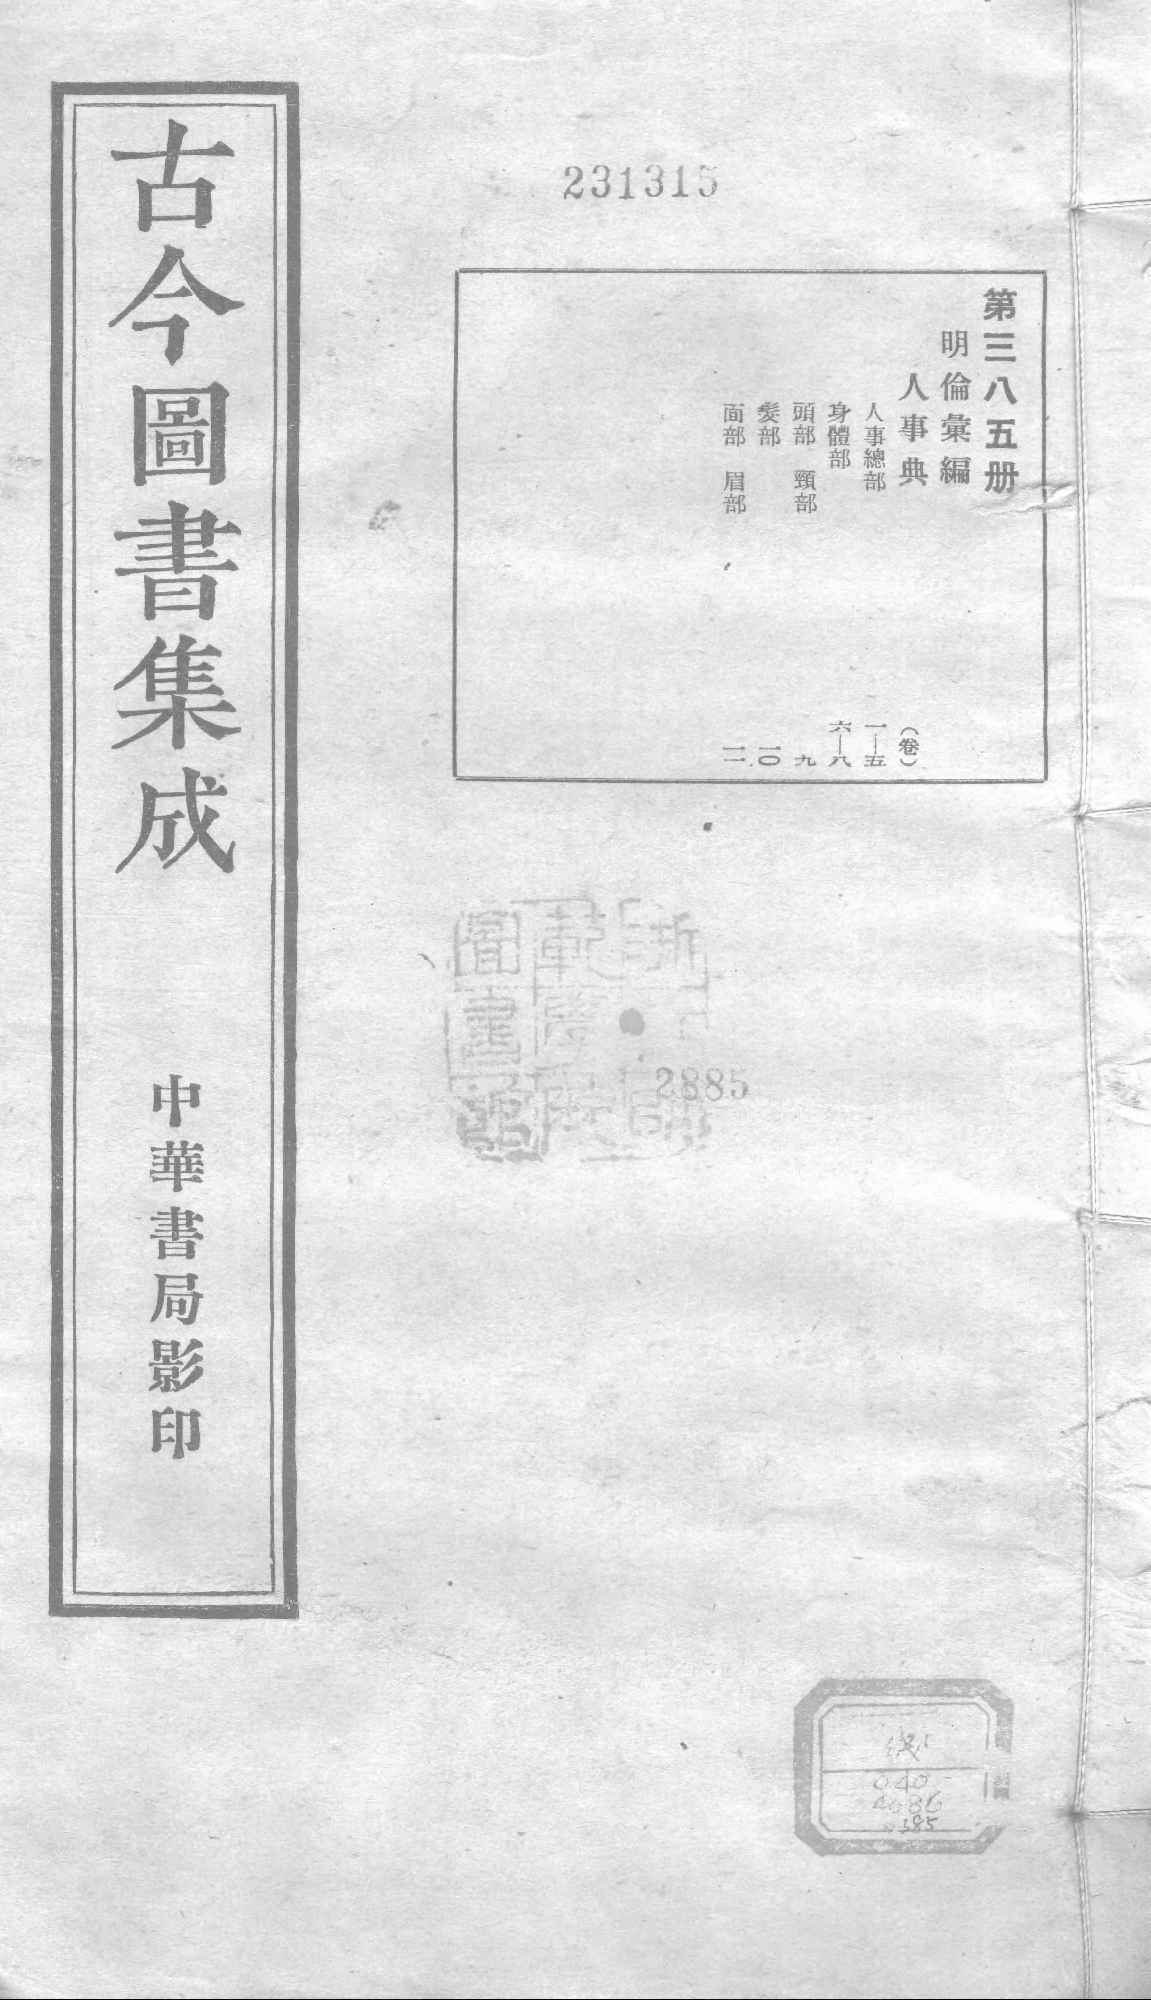 231315
第三八五册
明倫彙編
人事典 （卷）
人事總部 一—五
身體部 六—八
頭部 頸部 九
髮部 一〇
面部 眉部 一一
古今圖書集成
中華書局影印
浙
範學
圖書館
2885
线
040
4686
385